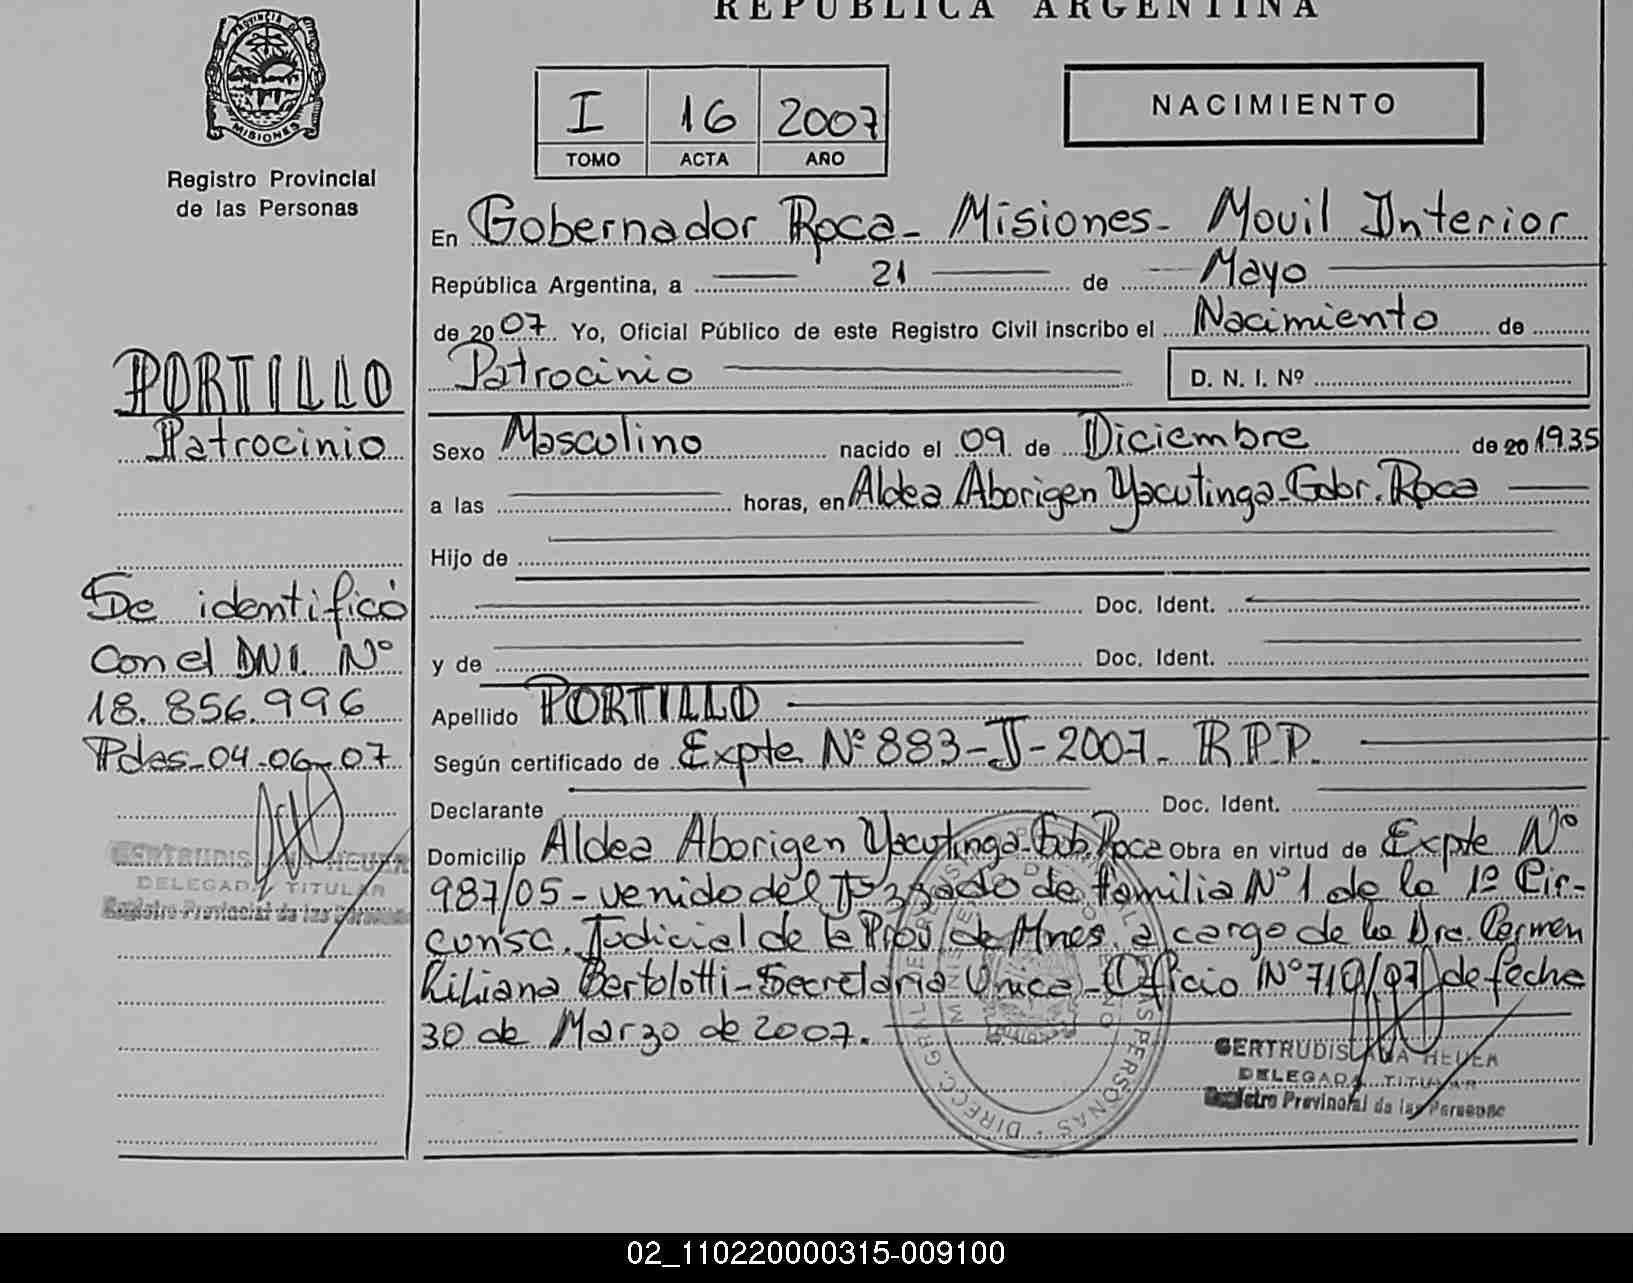 REPUBLICA ARGENTINA
PROVINCIA DE
MISIONES
Registro Provincial
de las Personas
I 16 2007
TOMO ACTA AÑO
NACIMIENTO
En Gobernador Roca - Misiones - Movil Interior
República Argentina, a 21 de Mayo
de 2007 Yo, Oficial Público de este Registro Civil inscribo el Nacimiento de
Patrocinio D. N. I. Nº
PORTILLO
Patrocinio
Se identificó
con el DNI. Nº
18.856.996
Pdas-04-06-07
DELEGADA TITULAR
Registro Provincial de las Personas
Sexo Masculino nacido el 09 de Diciembre de 20 1935
a las horas, en Aldea Aborigen Yacutinga-Gobr. Roca
Hijo de
Doc. Ident.
y de Doc. Ident.
Apellido PORTILLO
Según certificado de Expte Nº 883-J-2007. R.P.P.
Declarante Doc. Ident.
Domicilio Aldea Aborigen Yacutinga-Gob. Roca Obra en virtud de Expte Nº
987/05-venido del Juzgado de familia Nº 1 de la 1º Cir-
cunsc. Judicial de la Prov. de Mnes. a cargo de la Dra. Carmen
Liliana Bertolotti-Secretaria Unica-Oficio Nº 710/07 de fecha
30 de Marzo de 2007.
GERTRUDIS HEUER
DELEGADA TITULAR
Registro Provincial de las Personas
02_110220000315-009100